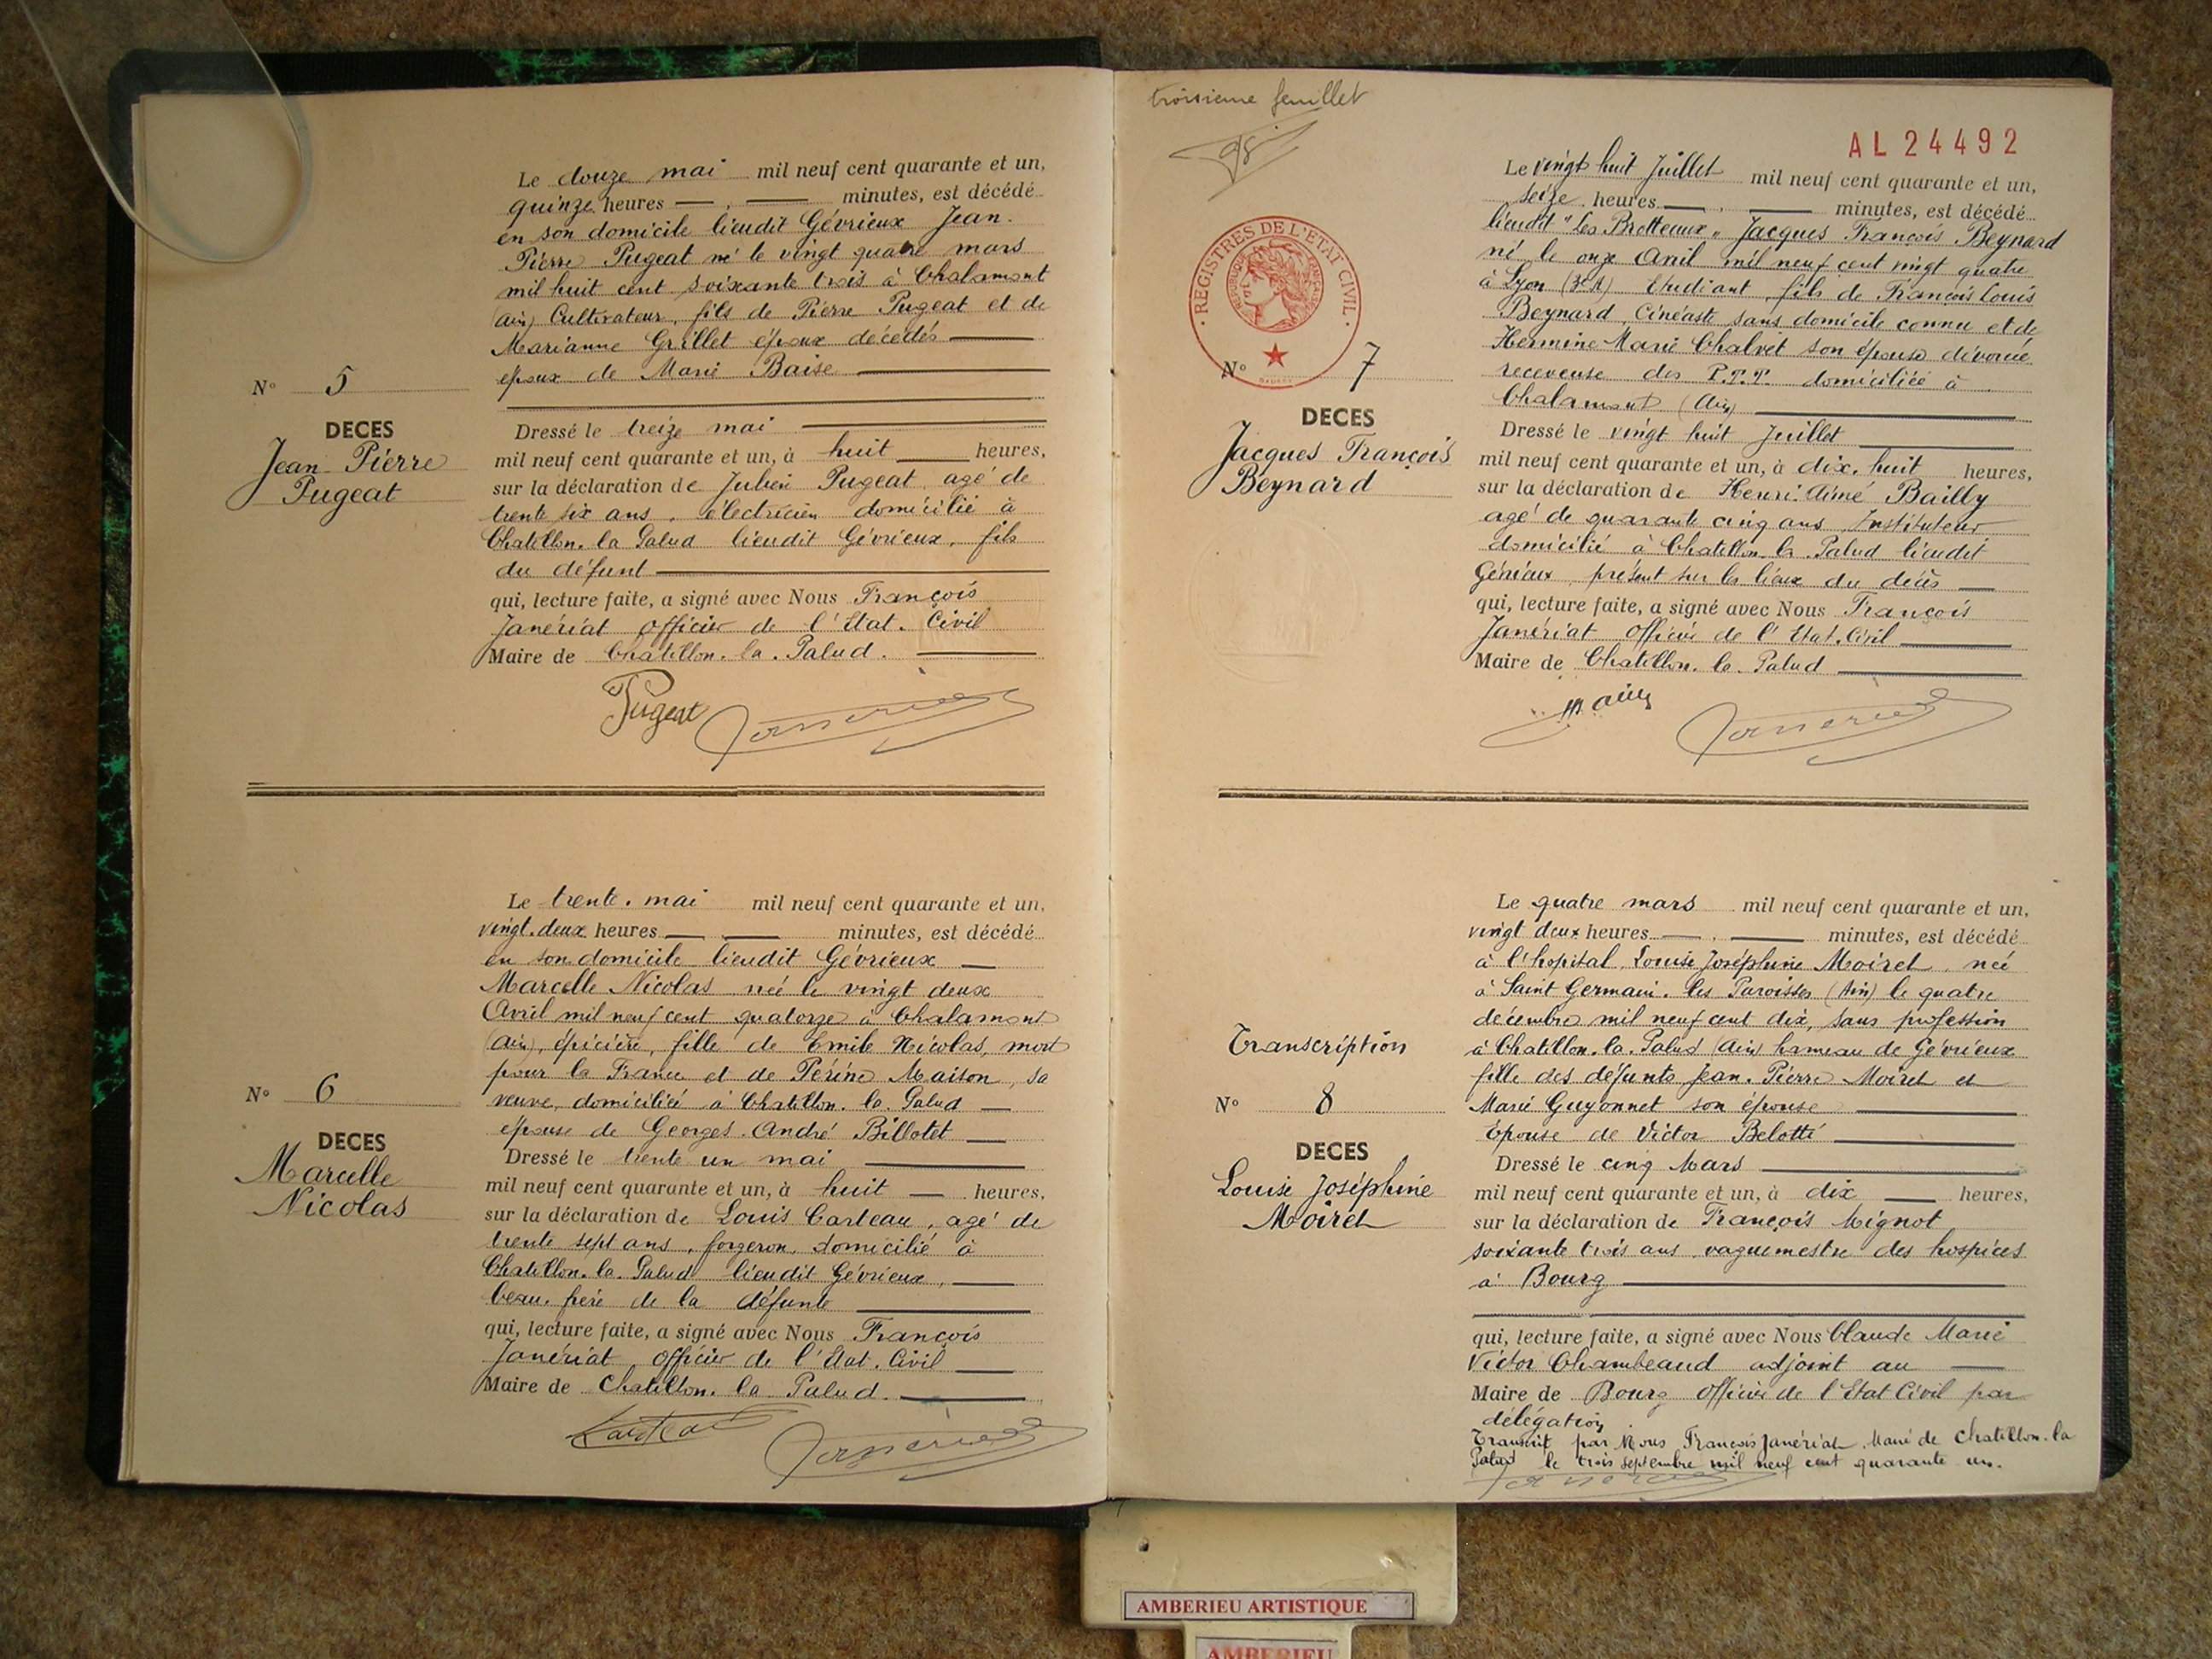 Le douze mai mil neuf cent quarante et un,
quinze heures — , — minutes, est décédé
en son domicile lieudit Gévrieux Jean.
Pierre Pugeat né le vingt quatre mars
mil huit cent soixante trois à Chalamont
(Ain) Cultivateur, fils de Pierre Pugeat et de
Marianne Grillet époux décédés —
époux de Marie Baise —
N° 5
DECES
Jean-Pierre
Pugeat
Dressé le treize mai —
mil neuf cent quarante et un, à huit — heures,
sur la déclaration de Julien Pugeat, agé de
trente six ans, électricien domicilié à
Chatillon. la Palud lieudit Gévrieux, fils
du défunt —
qui, lecture faite, a signé avec Nous François
Janériat officier de l'Etat. Civil
Maire de Chatillon. la. Palud. —
Pugeat Janériat
Le trente. mai mil neuf cent quarante et un,
vingt. deux heures — — minutes, est décédé
en son domicile lieudit Gévrieux —
Marcelle Nicolas née le vingt deux
Avril mil neuf cent quatorze à Chalamont
(Ain), épicière, fille de Emile Nicolas, mort
pour la France et de Périne Maison, sa
veuve, domiciliée à Chatillon. la. Palud —
épouse de Georges. André Billotet —
N° 6
DECES
Marcelle
Nicolas
Dressé le trente un mai —
mil neuf cent quarante et un, à huit — heures,
sur la déclaration de Louis Carteau, agé de
trente sept ans, forgeron, domicilié à
Chatillon. la. Palud lieudit Gévrieux, —
beau. frère de la défunte —
qui, lecture faite, a signé avec Nous François
Janériat, officier de l'Etat. Civil —
Maire de Chatillon. la Palud. —
Janériat
troisieme feuillet
AL 24492
REGISTRES DE L'ETAT CIVIL
Le vingt huit Juillet mil neuf cent quarante et un,
seize heures — , — minutes, est décédé
lieudit "Les Brotteaux" Jacques François Beynard
né le onze Avril mil neuf cent vingt quatre
à Lyon (3e A) Etudiant, fils de François Louis
Beynard, Cinéaste sans domicile connu et de
Hermine Marie Chalvet son épouse divorcée
receveuse des P.T.T. domiciliée à
Chalamont (Ain) —
N° 7
DECES
Jacques François
Beynard
Dressé le vingt huit Juillet —
mil neuf cent quarante et un, à dix. huit heures,
sur la déclaration de Henri. Aimé Bailly
agé de quarante cinq ans, Instituteur
domicilié à Chatillon. la. Palud lieudit
Gévrieux, présent sur les lieux du décès —
qui, lecture faite, a signé avec Nous François
Janériat Officier de l'Etat. Civil —
Maire de Chatillon. la. Palud —
Janériat
Le quatre mars mil neuf cent quarante et un,
vingt deux heures — , — minutes, est décédé
à l'hopital, Louise Joséphine Moiret, née
à Saint Germain. les Paroisses (Ain) le quatre
décembre mil neuf cent dix, sans profession
à Chatillon. la. Palud (Ain) hameau de Gévrieux
fille des défunts Jean. Pierre Moiret et
Marie Guyonnet son épouse —
Epouse de Victor Belotti —
Transcription
N° 8
DECES
Louise Joséphine
Moiret
Dressé le cinq Mars —
mil neuf cent quarante et un, à dix — heures,
sur la déclaration de François Mignot
soixante trois ans vaguemestre des hospices
à Bourg —
qui, lecture faite, a signé avec Nous Claude Marie
Victor Chambeaud adjoint au —
Maire de Bourg Officier de l'Etat Civil par
délégation
Transcrit par Nous François Janériat, Maire de Chatillon. la
Palud le trois Septembre mil neuf cent quarante un.
Janériat
AMBERIEU ARTISTIQUE
AMBERIEU